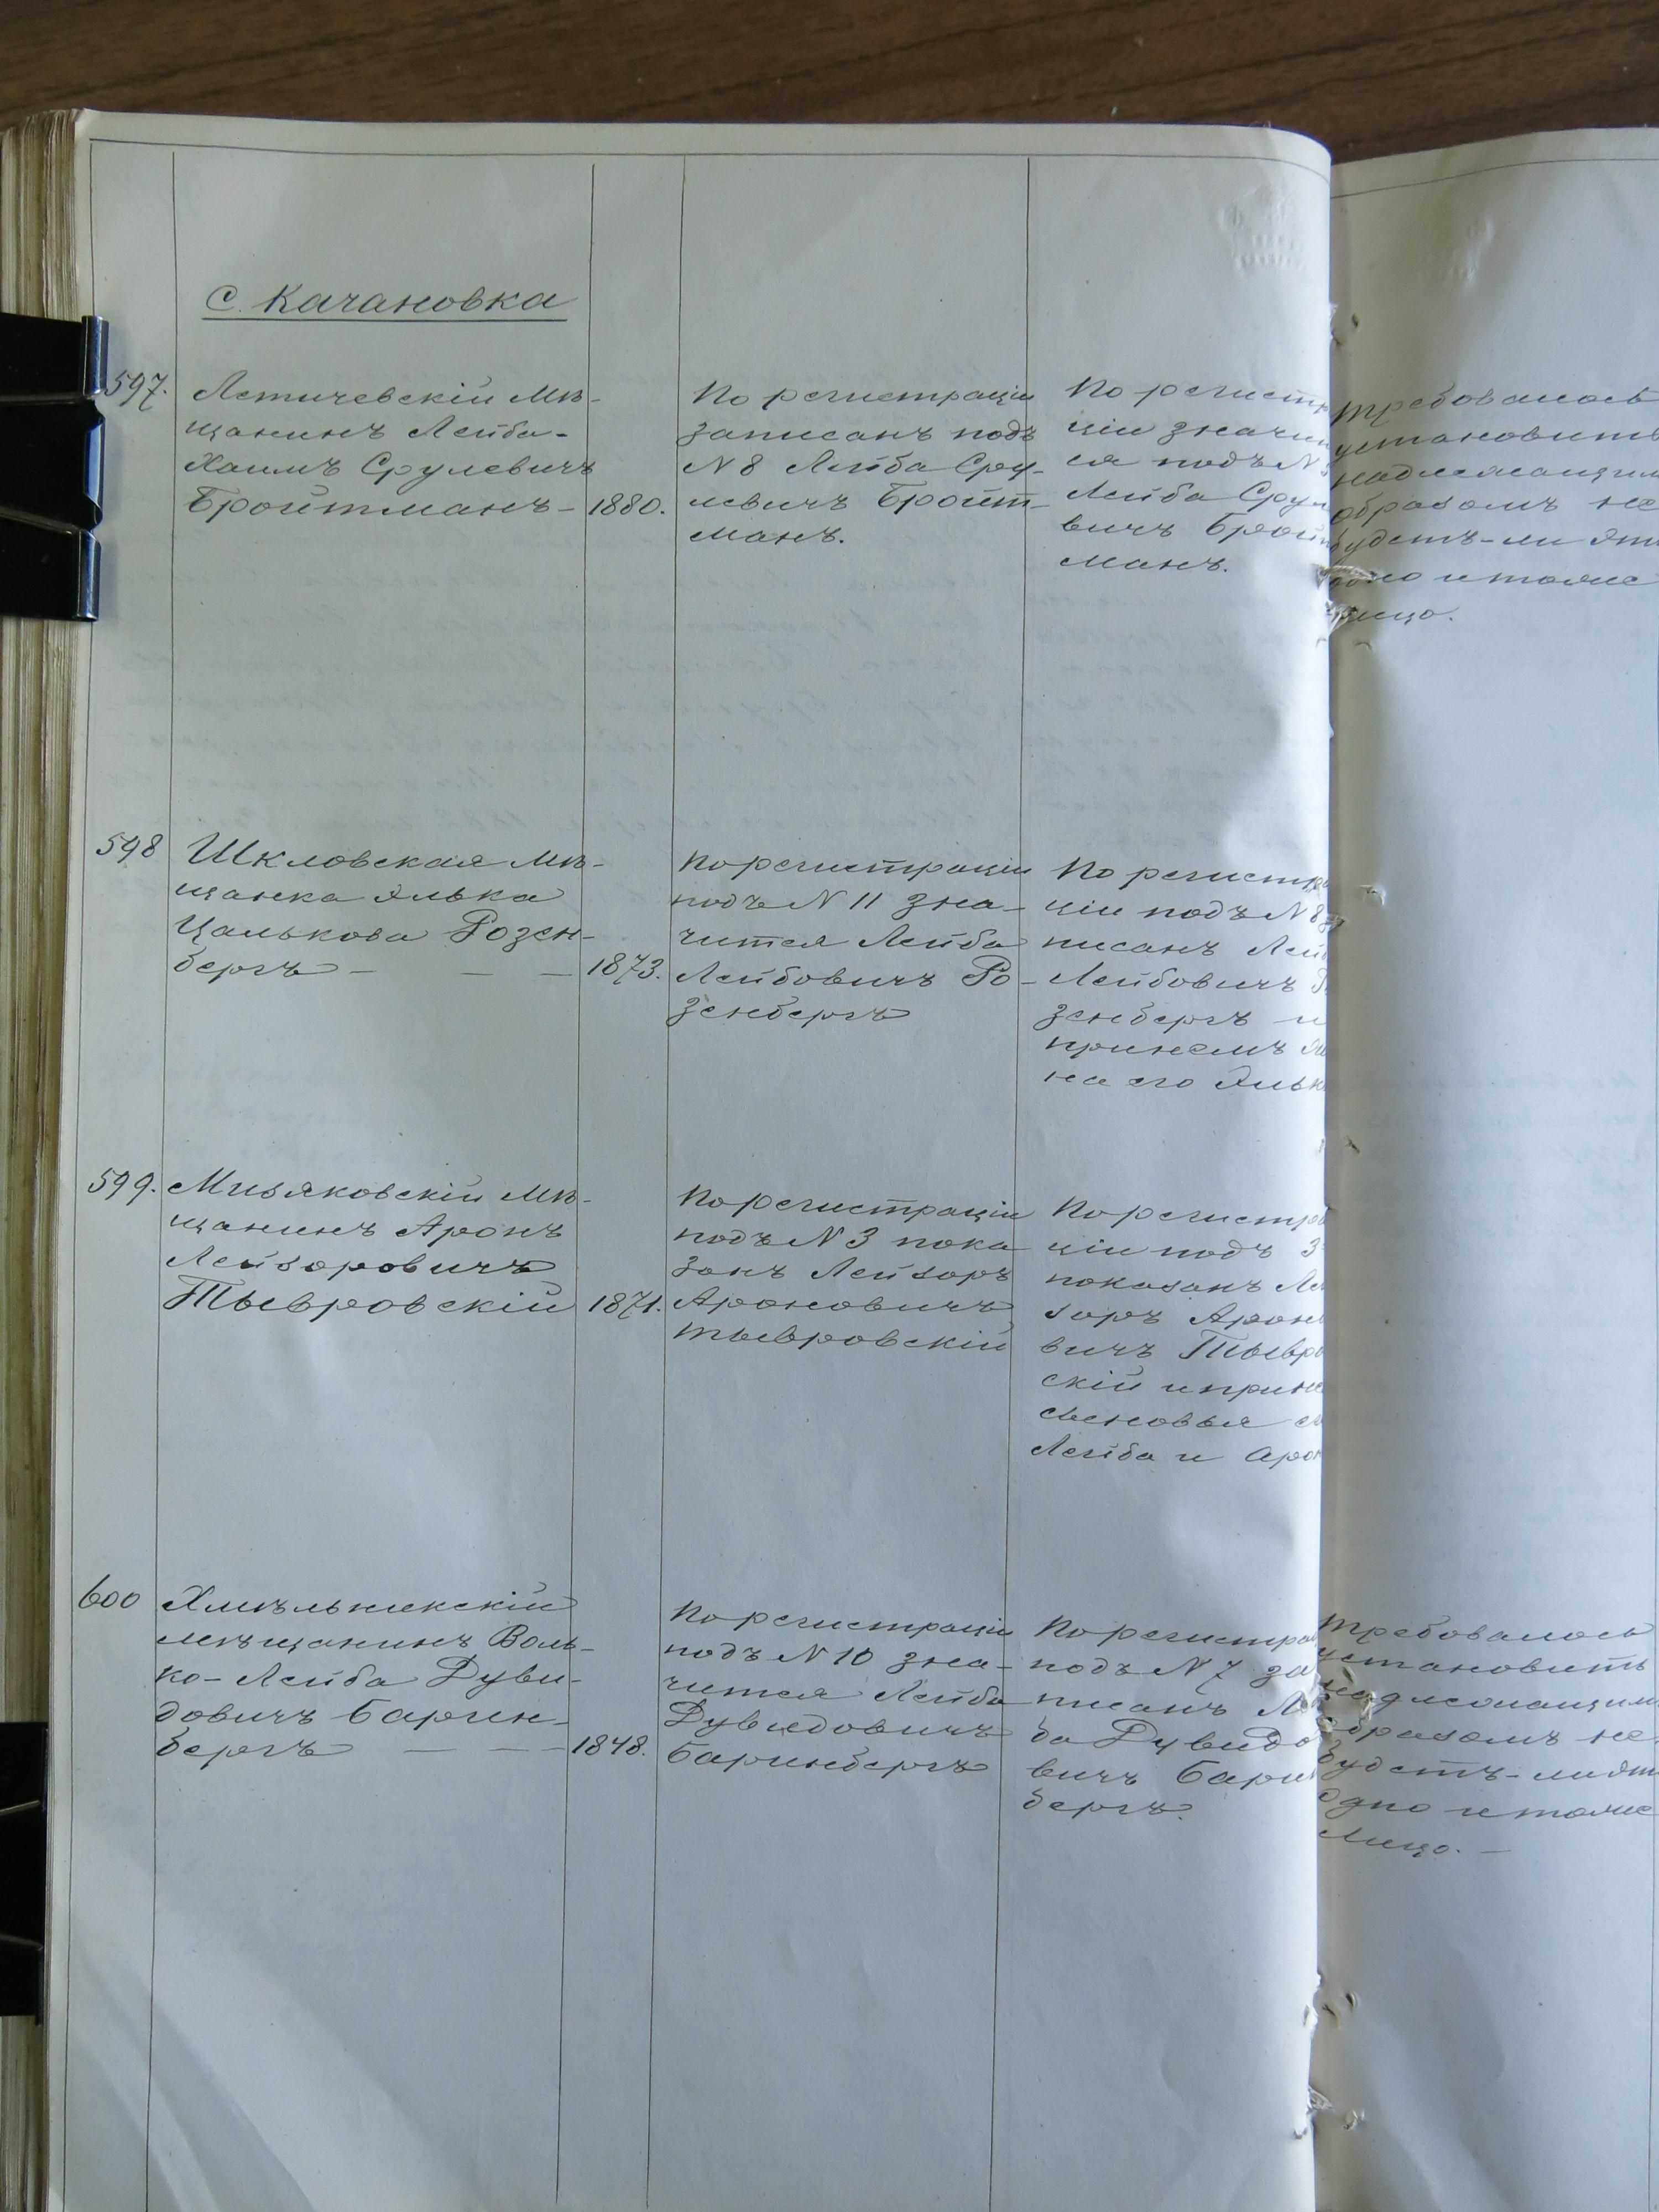 С. Качановка
597.
Летичевскій мѣ-
щанинъ Лейба-
Хаимъ Срулевичъ
Бройтманъ-
1880.
По регистраціи
записанъ подъ
N 8 Лейба Сру-
левичъ Бройт-
манъ.
По регистр
ціи значит
ся подъ N
Лейба Сруле
вичъ Бройт
манъ.
требовалось
установить
надлежащим
образомъ не
будетъ-ли это
одно и тоже
лицо.
598
Шкловская мѣ-
щанка Элька
Цалькова Розен-
бергъ - - -
1873.
По регистраціи
подъ N 11 зна-
чится Лейба
Лейбовичъ Ро-
зенбергъ
По регистра
ціи подъ N 8 за
писанъ Лей
Лейбовичъ
зенбергъ и
принемъ же
на его Эльк
599.
Мизяковскій мѣ-
щанинъ Аронъ
Лейзоровичъ
Тывровскій
1871.
По регистраціи
подъ N 3 пока
занъ Лейзоръ
Ароновичъ
тывровскій
По регистра
ціи подъ 3
показанъ Лей
зоръ Ароно
вичъ Тывро
скій и прине
сыновья е
Лейба и Арон
600
Хмѣльникскій
мѣщанинъ Воль-
ко-Лейба Дуви-
довичъ Барен-
бергъ - - -
1848.
По регистраціи
подъ N 10 зна-
чится Лейба
Дувидовичъ
Баринбергъ
По регистра
подъ N 7 за
писанъ Лей
ба Дувидо
вичъ Барин
бергъ.
требовалось
установить
надлежащим
образомъ не
будетъ-ли это
одно и тоже
лицо. -